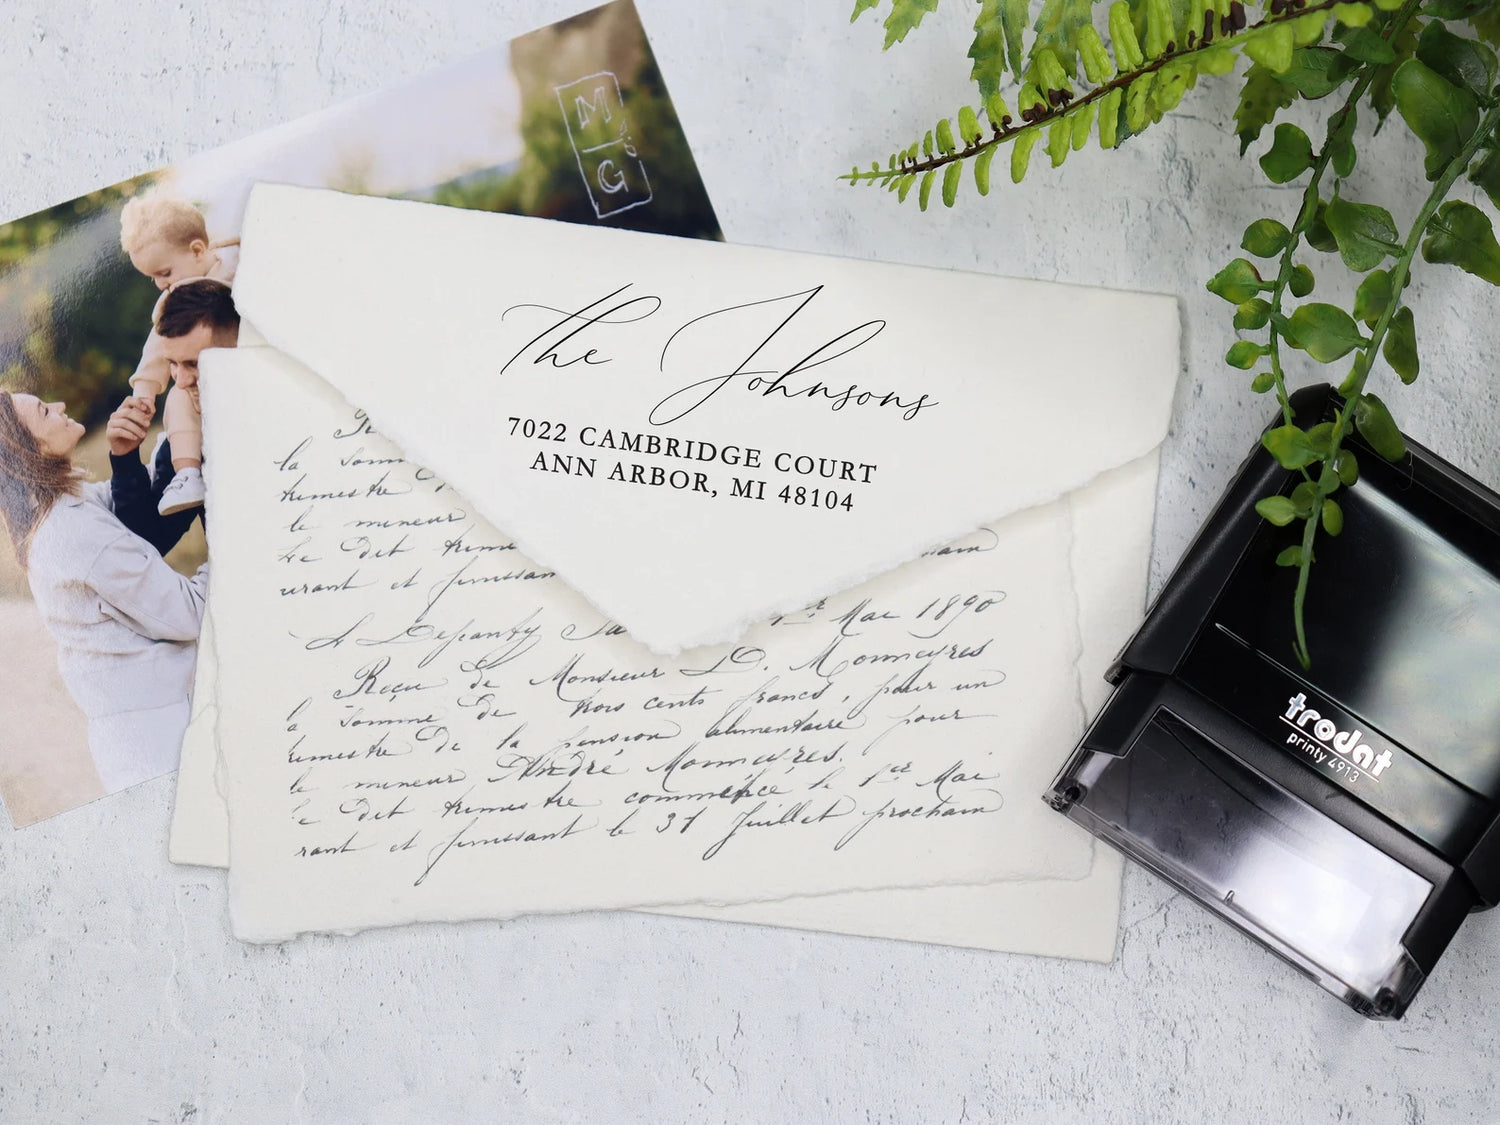 M & G
the Johnsons
7022 CAMBRIDGE COURT
ANN ARBOR, MI 48104
la Somm
trimestre
le mineur
Le dit trime
urant et finissant
1er Mai 1890
Reçu de Monsieur D. Monneyres
la Somme de trois cents francs, pour un
trimestre de la pension alimentaire pour
le mineur André Monneyres.
Le dit trimestre commence le 1er Mai
rant et finissant le 31 Juillet prochain
trodat
printy 4913